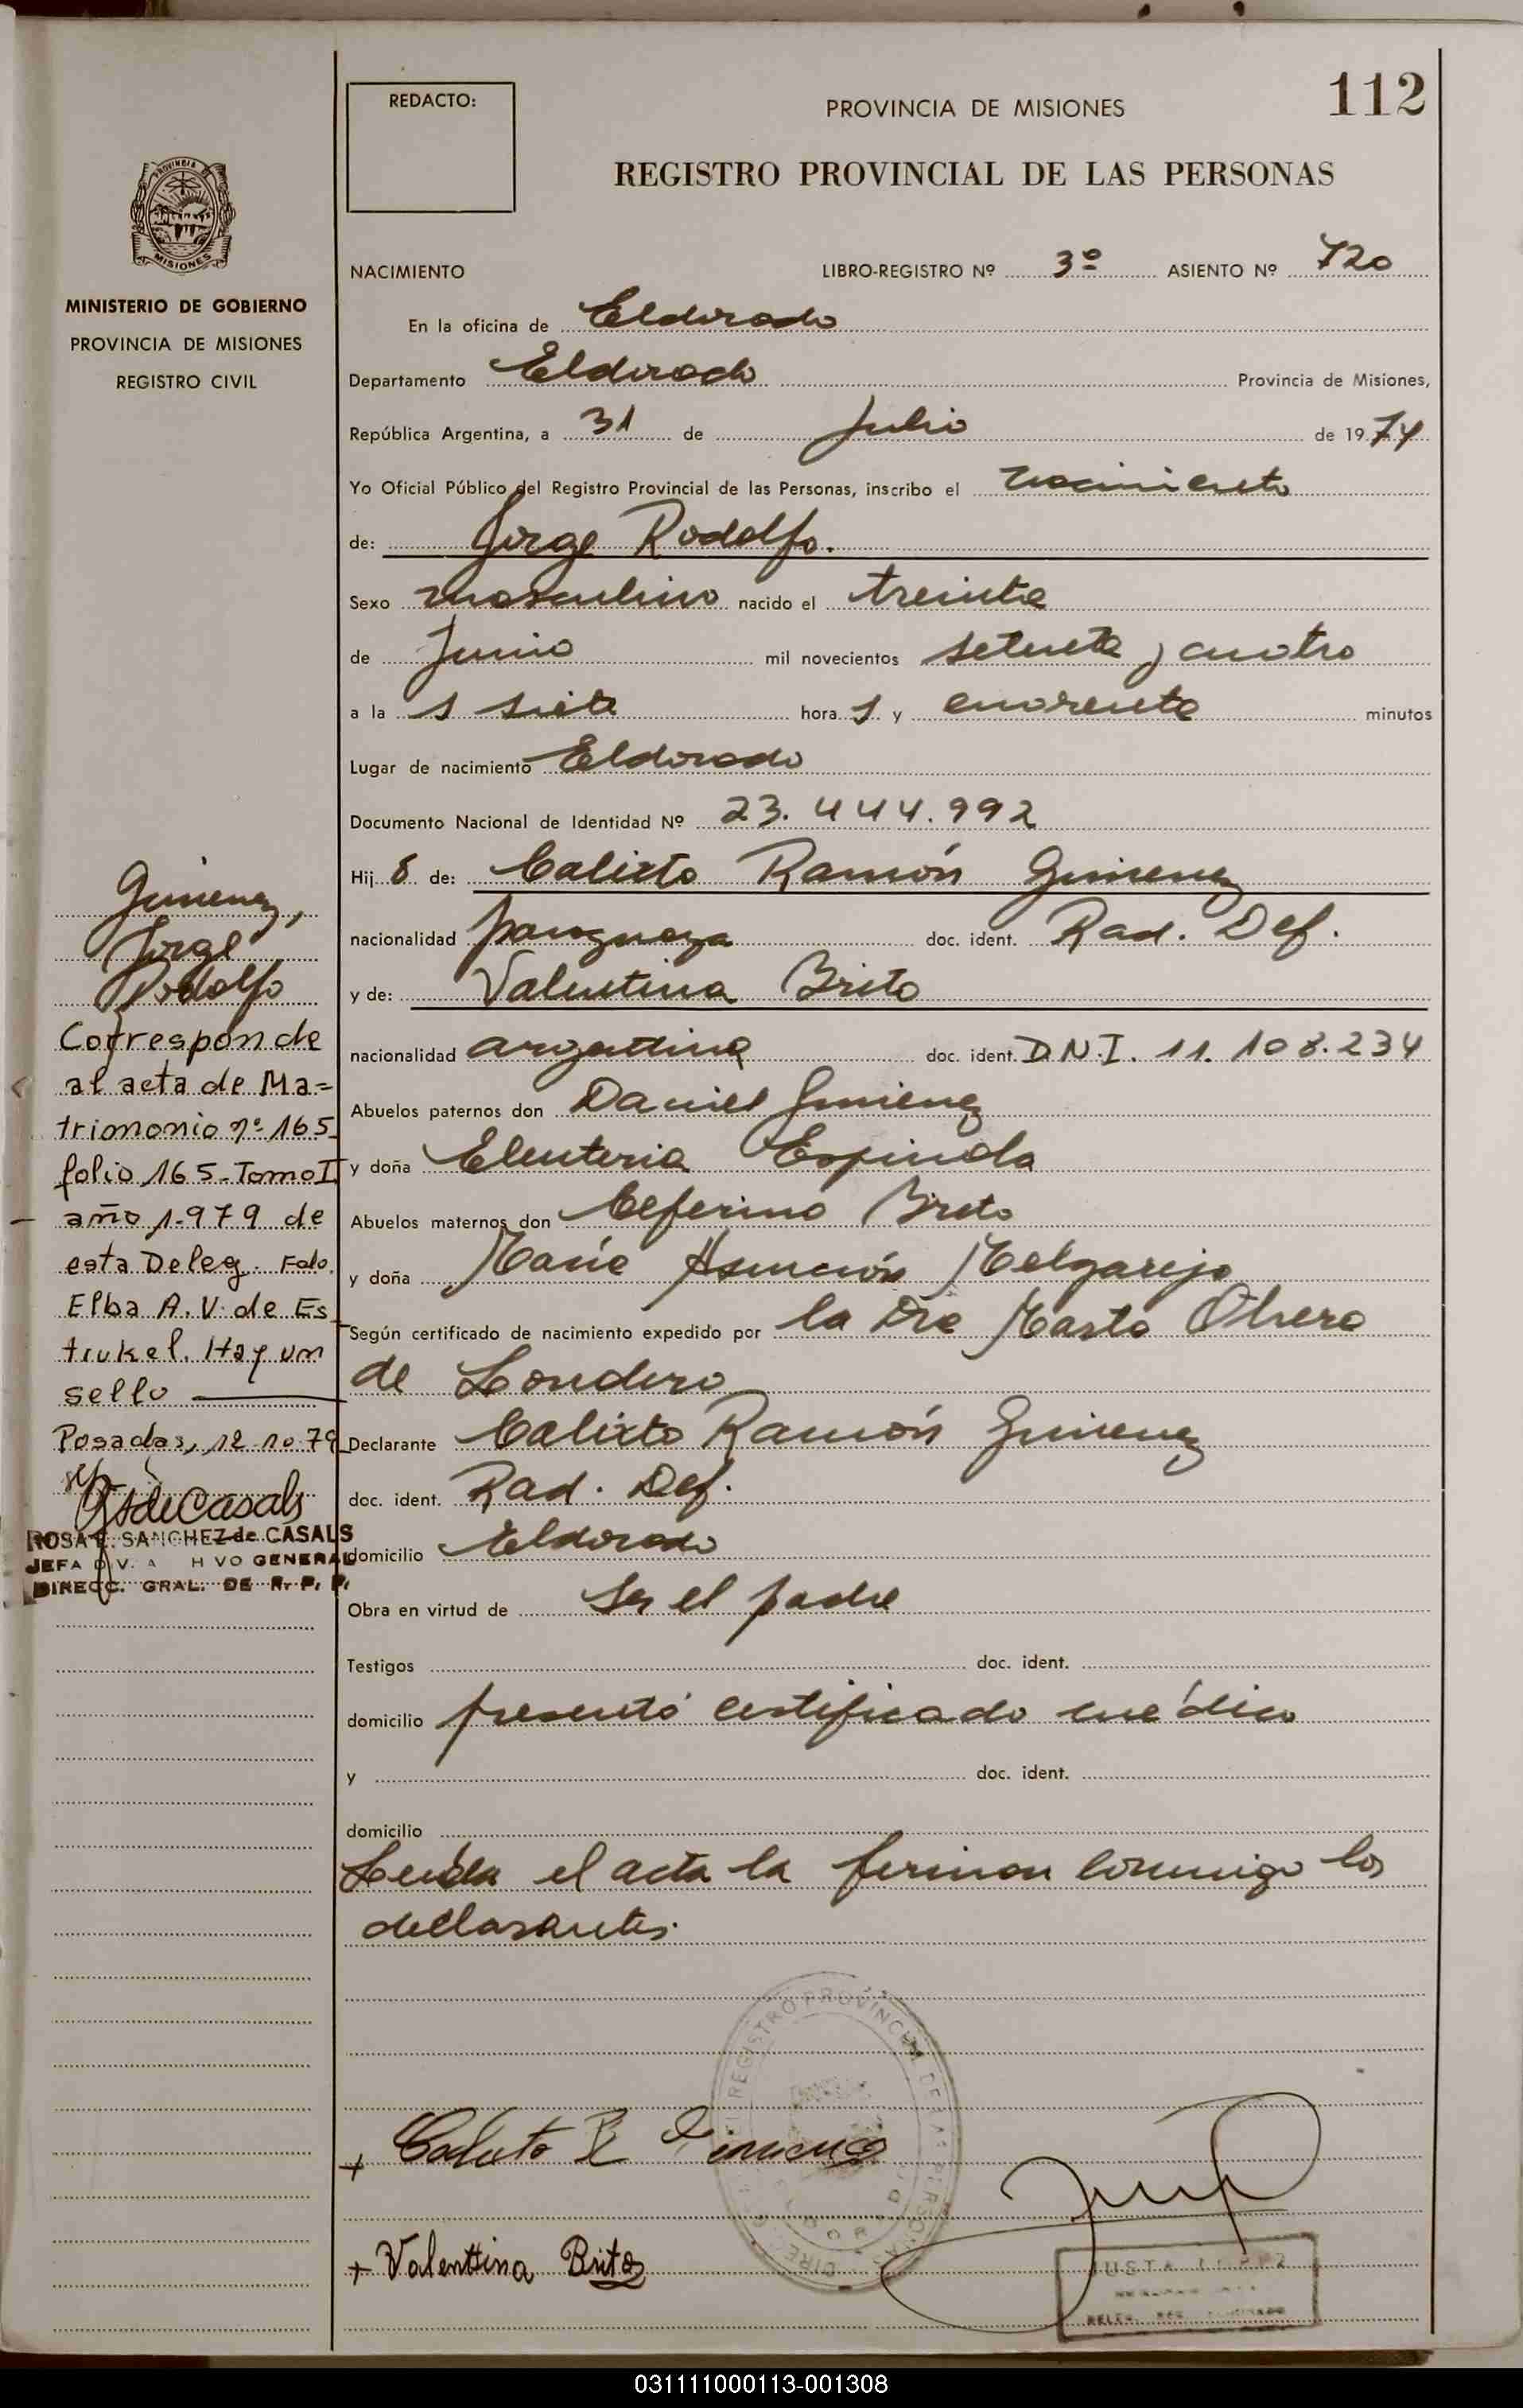 112
REDACTO:
PROVINCIA DE MISIONES
REGISTRO PROVINCIAL DE LAS PERSONAS
PROVINCIA
MISIONES
MINISTERIO DE GOBIERNO
PROVINCIA DE MISIONES
REGISTRO CIVIL
NACIMIENTO LIBRO-REGISTRO Nº 3º ASIENTO Nº 720
En la oficina de Eldorado
Departamento Eldorado Provincia de Misiones,
República Argentina, a 31 de Julio de 1974
Yo Oficial Público del Registro Provincial de las Personas, inscribo el nacimiento
de: Jorge Rodolfo.
Sexo masculino nacido el treinta
de Junio mil novecientos setenta y cuatro
a la s siete hora s y cuarenta minutos
Lugar de nacimiento Eldorado
Documento Nacional de Identidad Nº 23.444.992
Hij o de: Calixto Ramón Gimenez
nacionalidad paraguaya doc. ident. Rad. Def.
y de: Valentina Brito
nacionalidad argentina doc. ident. D.N.I. 11.108.234
Abuelos paternos don Daniel Gimenez
y doña Eleuteria Espinola
Abuelos maternos don Ceferino Brito
y doña María Asunción Melgarejo
Según certificado de nacimiento expedido por la Dra Marta Olivera
de Londero
Declarante Calixto Ramón Gimenez
doc. ident. Rad. Def.
domicilio Eldorado
Obra en virtud de ser el padre
Testigos doc. ident.
domicilio presentó certificado médico
y doc. ident.
domicilio
Leída el acta la firman conmigo los
declarantes.
Gimenez,
Jorge
Rodolfo
Corresponde
al acta de Ma=
trimonio nº 165
folio 165-Tomo I
año 1.979 de
esta Deleg. Fdo.
Elba A. V. de Es
trukel. Hay un
sello
Posadas, 12-10-79
RSdeCasals
ROSA E. SANCHEZ de CASALS
JEFA DIV. A HVO GENERAL
DIRECC. GRAL. DE R. P. P.
+ Calixto R Gimenez
+ Valentina Brito
REGISTRO PROVINCIAL DE LAS PERSONAS
JUSTA LOPEZ
031111000113-001308